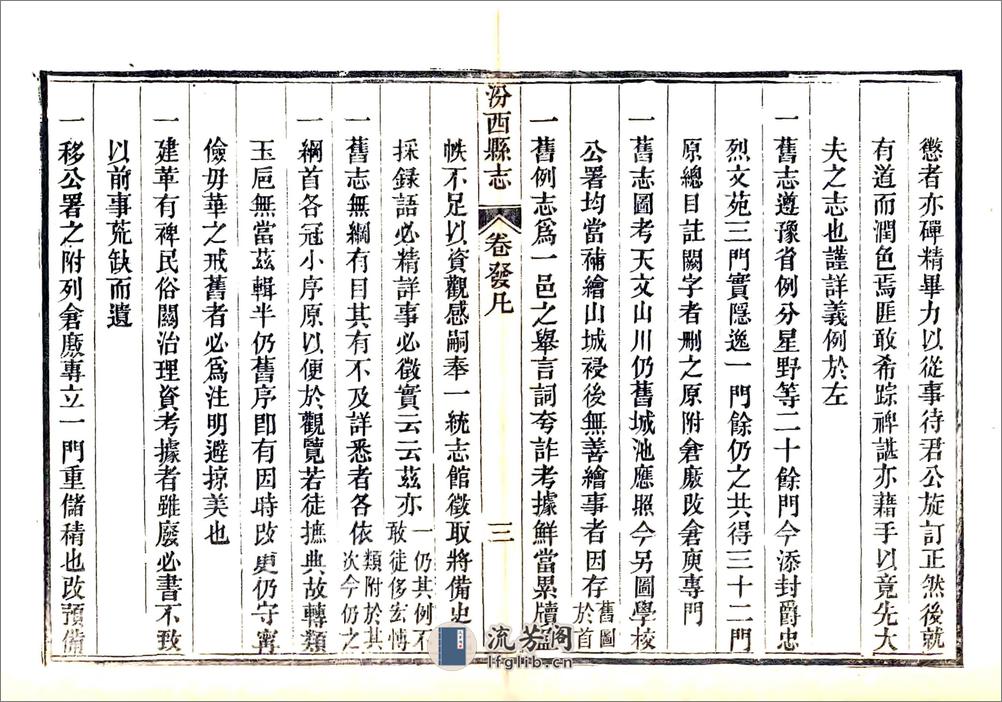 懲者亦殫精畢力以從事待君公旋訂正然後就
有道而潤色焉匪敢希踪裨諶亦藉手以竟先大
夫之志也謹詳義例於左
一舊志遵豫省例分星野等二十餘門今添封爵忠
烈文苑三門實隱逸一門餘仍之共得三十二門
原總目註闕字者刪之原附倉廠改倉庾專門
一舊志圖考天文山川仍舊城池應照今另圖學校
公署均當補繪山城祲後無善繪事者因存舊圖
於首
一舊例志為一邑之舉言詞夸詐考據鮮當累牘盈
汾西縣志
卷發凡
三
帙不足以資觀感嗣奉一統志館徵取將備史
採録語必精詳事必徵實云云茲亦一仍其例不
敢徒侈宏博
一舊志無綱有目其有不及詳悉者各依類附於其
次今仍之
一綱首各冠小序原以便於觀覽若徒摭典故轉類
玉巵無當茲輯半仍舊序即有因時改更仍守寗
儉毋華之戒舊者必為注明避掠美也
一建革有裨民俗關治理資考據者雖廢必書不致
以前事荒缺而遺
一移公署之附列倉廒專立一門重儲積也改預備
流芳閣
lfglib.cn